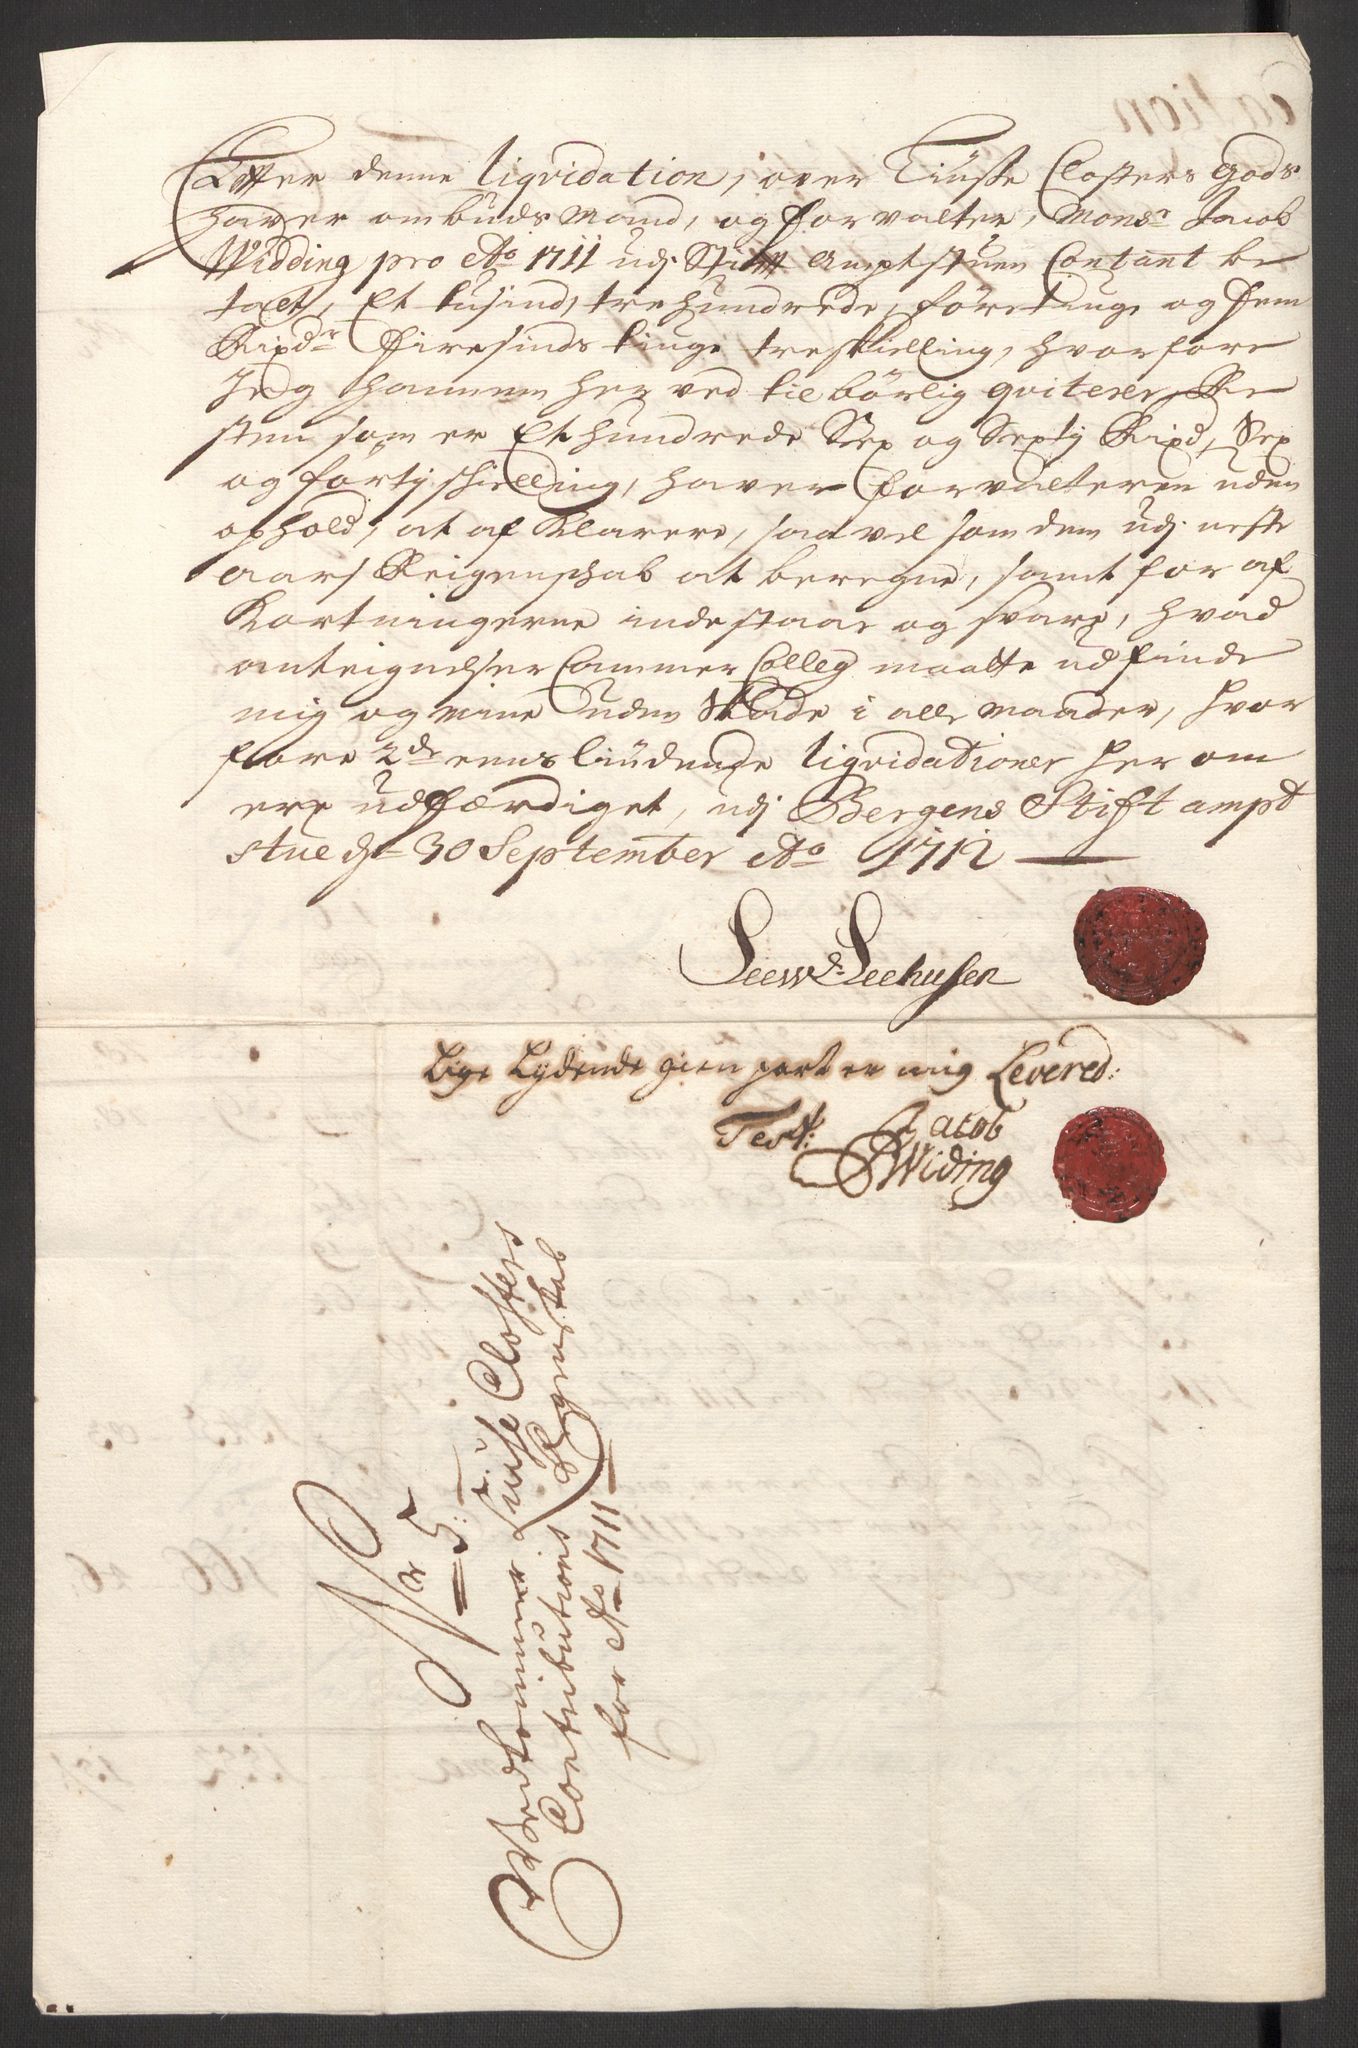 Efter denne liqvidation, over Liuse Closters Gods
haver ombuds Mand, og forvalter, Mons:r Jacob
Widding pro Ao 1711 udj Stift Ampt stuen Contant be
talt, Et tusind, trehundrede, före tiuge og fem
Rixd:r firesinds tiuge treskielling, hvorfore
Jeg hannem her ved tilbörlig qviterer, Re
sten som er Et hundrede Sex og Sexty Rixd, Sex
ogförtj schielling, haver forvalteren uden
ophold, at af Klarere, saavel som dem udj neste
aars Reigenschab at beregne, samt for af
Kortningerne indestaar og svare, hvad
anteignelser Cammer Colleg maatte udfinde
mig og mine uden Skade i alle maader, hvor
fore 2de eens liüdende liqvidationer her om
ere udfærdiget, udj Bergens Stift ampt
stue d: 30 September Ao 1712
Seew d: Seehusen
Lige Lydende gien part er mig Levered:
Test: Jacob
Widing
Nr 5:
Vedkommer Liuse Closters
Contributions Regnskab
for Ao 1711